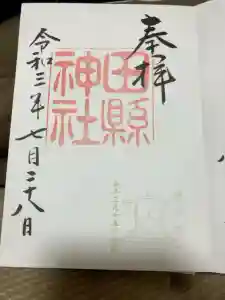 奉拝
田縣
神社
令和三年七月二十八日